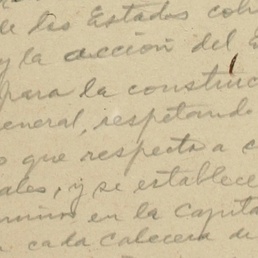 de los Estados coh
y la acción del E
para la construc
eneral, respetando
o que respecta a c
ales, y se establece
minos en la Capita
cada cabecera de